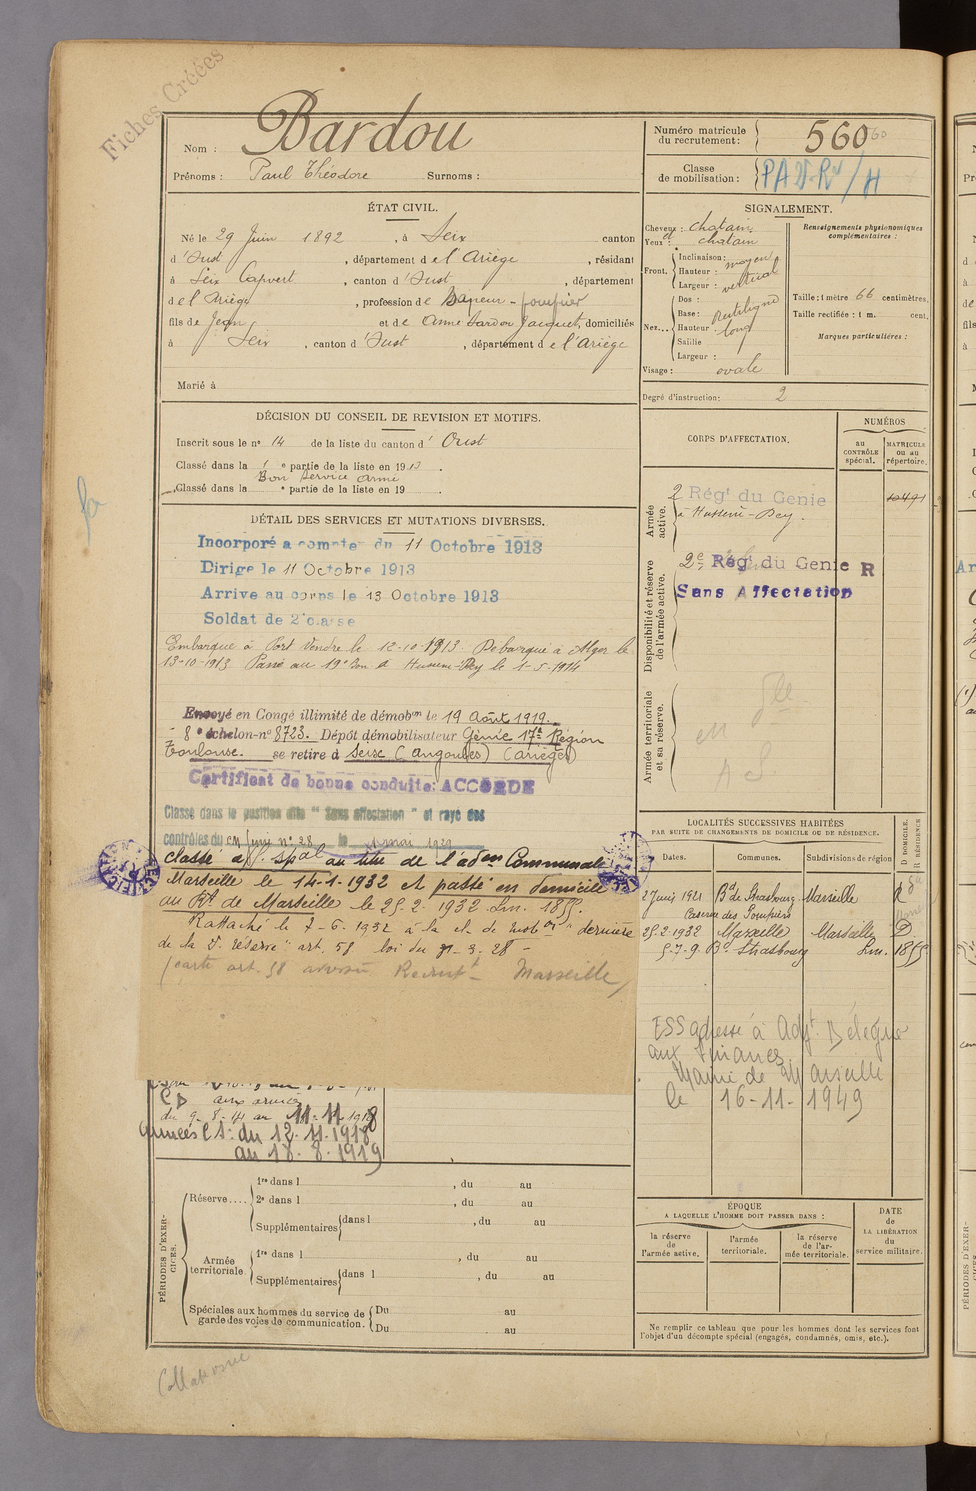 Fiches Créées
Nom : Bardou
Prénoms : Paul Théodore Surnoms :
Numéro matricule du recrutement : 560
Classe de mobilisation :
ÉTAT CIVIL.
Né le 29 Juin 1892, à Seix canton
d'Oust, département de l'Ariège, résidant
à Seix, canton d'Oust, département
de l'Ariège, profession de Sapeur-pompier
fils de Jean et de Anne, domiciliés
à Seix, canton d'Oust, département de l'Ariège
Marié à
SIGNALEMENT.
Cheveux : chatain
Yeux : chatain
Front. Inclinaison : moyen
Hauteur : vertical
Largeur :
Nez... Dos : Rectiligne
Base :
Hauteur : long
Saillie
Largeur :
Visage : ovale
Renseignements physionomiques complémentaires :
Taille : 1 mètre 66 centimètres.
Taille rectifiée : 1 m. cent.
Marques particulières :
Degré d'instruction : 2
DÉCISION DU CONSEIL DE REVISION ET MOTIFS.
Inscrit sous le n° 14 de la liste du canton d'Oust
Classé dans la 1e partie de la liste en 1913.
Bon service armé
Classé dans la e partie de la liste en 19 .
DÉTAIL DES SERVICES ET MUTATIONS DIVERSES.
Incorporé à compter du 11 Octobre 1913
Dirigé le 11 Octobre 1913
Arrivé au corps le 13 Octobre 1913
Soldat de 2e classe
Embarqué à Port Vendre le 12-10-1913 Débarqué à Alger le
13-10-1913 Passé au 19e Bon à Hussein-Dey le 1-5-1914
Envoyé en Congé illimité de démobon le 19 Août 1919.
8e échelon-n° 8723. Dépôt démobilisateur Génie 17e Région
Toulouse. se retire à Seix (Ariège)
Certificat de bonne conduite: ACCORDÉ
Classé dans la position dite "Sans affectation" et rayé des
contrôles du n° 28 le 1 mai 1929
Classé aff. spal au titre de l'adon Communale
Marseille le 14-1-1932 et passé en domicile
au Rt de Marseille le 25-2-1932 Lm. 1855.
Rattaché le 7-6-1932 à la cl. de mobon "dernière
de la 2e réserve" art. 58 loi du 31-3-28 -
Marseille
aux armées
du 9-8-14 au 11-11-1918
Armées CS: du 12-11-1918
au 18-8-1919
CORPS D'AFFECTATION.
NUMÉROS
au CONTRÔLE spécial.
MATRICULE ou au répertoire.
Armée active.
2 Régt du Génie
à Hussein-Dey.
10491
Disponibilité et réserve de l'armée active.
2e Régt du Génie R
Sans Affectation
Armée territoriale et sa réserve.
LOCALITÉS SUCCESSIVES HABITÉES
PAR SUITE DE CHANGEMENTS DE DOMICILE OU DE RÉSIDENCE.
Dates. Communes. Subdivisions de région D DOMICILE. R RÉSIDENCE
2 Juin 1921 Bd de Strasbourg Marseille R
Caserne des Pompiers
25-2-1932 Marseille Marseille D
Bd Strasbourg Lm. 1855
ESS adressé à Adjt Délégué
aux Finances
Mairie de Marseille
le 16-11-1949
PÉRIODES D'EXERCICES.
Réserve.... 1re dans l , du au
2e dans l , du au
Supplémentaires dans l , du au
Armée territoriale 1re dans l , du au
Supplémentaires dans l , du au
Spéciales aux hommes du service de garde des voies de communication. Du au
Du au
ÉPOQUE
A LAQUELLE L'HOMME DOIT PASSER DANS :
la réserve de l'armée active.
l'armée territoriale.
la réserve de l'armée territoriale.
DATE de LA LIBÉRATION du service militaire.
Ne remplir ce tableau que pour les hommes dont les services font
l'objet d'un décompte spécial (engagés, condamnés, omis, etc.).